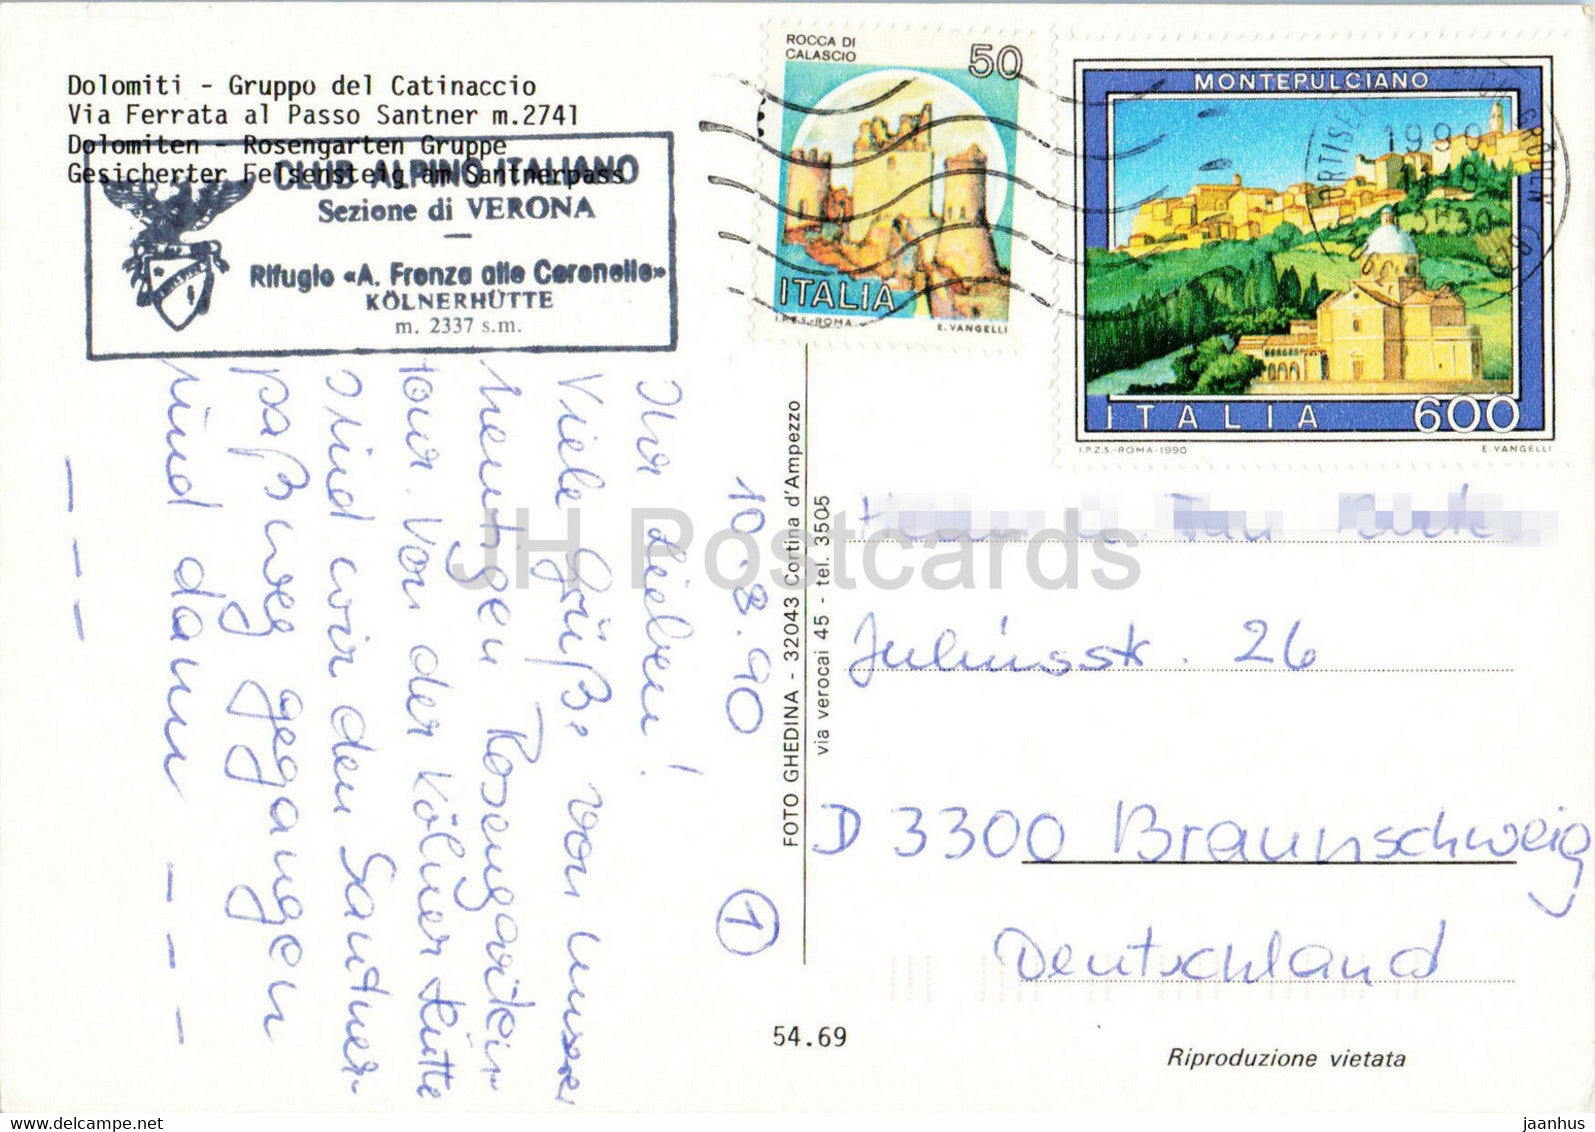 Dolomiti - Gruppo del Catinaccio
Via Ferrata al Passo Santner m.2741
Dolomiten - Rosengarten Gruppe
Gesicherter Felsensteig am Santnerpass
CLUB ALPINO ITALIANO
Sezione di VERONA
Rifugio «A. Fronza alle Coronelle»
KÖLNERHÜTTE
m. 2337 s.m.
ROCCA DI
CALASCIO
50
ITALIA
I.P.Z.S.-ROMA
E. VANGELLI
MONTEPULCIANO
ITALIA 600
I.P.Z.S.-ROMA-1990
E. VANGELLI
1990
10.8.90
Ihr Lieben!
Viele Grüße von unserer
heutigen Rosengarten
tour. Von der Kölner Hütte
sind wir den Santner-
paßweg gegangen
und dann - - -
- - -
1
FOTO GHEDINA - 32043 Cortina d'Ampezzo
via verocai 45 - tel. 3505
Juliusstr. 26
D 3300 Braunschweig
Deutschland
54.69
Riproduzione vietata
JH Postcards
www.delcampe.net
jaanhus